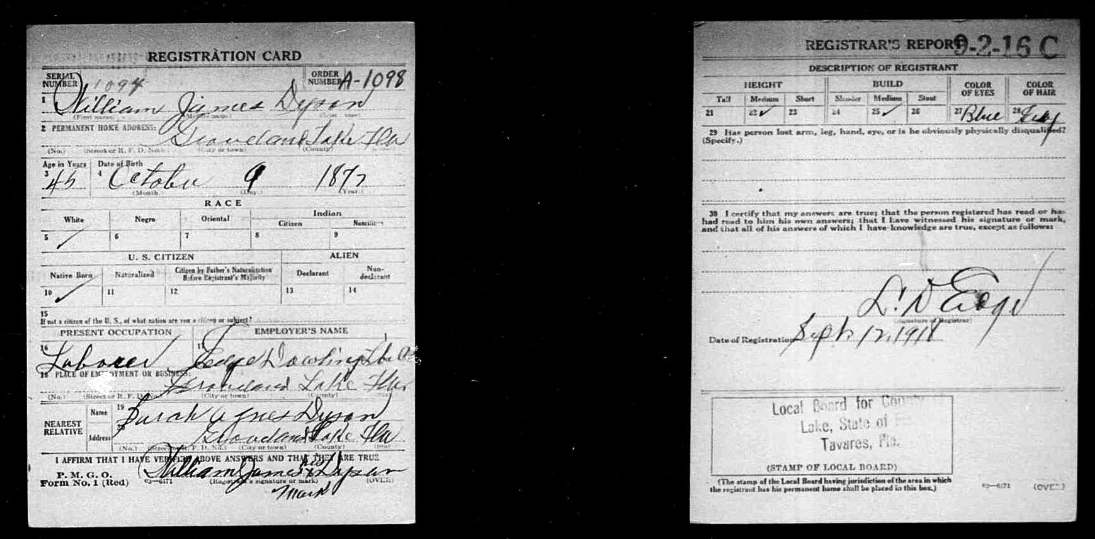 REGISTRATION CARD
SERIAL NUMBER 1094
ORDER NUMBER A-1098
1 William James Dyson
(First name) (Middle name) (Last name)
2 PERMANENT HOME ADDRESS:
Groveland Lake Fla
(No.) (Street or R. F. D. No.) (City or town) (County) (State)
Age in Years Date of Birth
3 45 4 October 9 1872
(Month.) (Day.) (Year.)
RACE
White Negro Oriental Indian
Citizen Noncitizen
5 ✓ 6 7 8 9
U. S. CITIZEN ALIEN
Native Born Naturalized Citizen by Father's Naturalization Before Registrant's Majority Declarant Non-declarant
10 ✓ 11 12 13 14
15
If not a citizen of the U. S., of what nation are you a citizen or subject?
PRESENT OCCUPATION EMPLOYER'S NAME
16 Laborer 17 Edge Dowling Lbr Co
18 PLACE OF EMPLOYMENT OR BUSINESS:
Groveland Lake Fla
(No.) (Street or R. F. D. No.) (City or town) (County)
NEAREST RELATIVE
Name 19 Sarah Agnes Dyson
Address 20 Groveland Lake Fla
(No.) (Street or R. F. D. No.) (City or town) (County) (State)
I AFFIRM THAT I HAVE VERIFIED ABOVE ANSWERS AND THAT THEY ARE TRUE
P. M. G. O.
Form No. 1 (Red)
William James his x Dyson
mark
(Registrant's signature or mark) (OVER)
REGISTRAR'S REPORT 9-2-16 C
DESCRIPTION OF REGISTRANT
HEIGHT BUILD COLOR OF EYES COLOR OF HAIR
Tall Medium Short Slender Medium Stout
21 22 ✓ 23 24 25 ✓ 26 27 Blue 28
29 Has person lost arm, leg, hand, eye, or is he obviously physically disqualified?
(Specify.)
30 I certify that my answers are true; that the person registered has read or has
had read to him his own answers; that I have witnessed his signature or mark,
and that all of his answers of which I have knowledge are true, except as follows:
L. D Edge
(Signature of Registrar)
Date of Registration Sept 12, 1918
Local Board for County
Lake, State of
Tavares, Fla.
(STAMP OF LOCAL BOARD)
(The stamp of the Local Board having jurisdiction of the area in which
the registrant has his permanent home shall be placed in this box.)
(OVER)